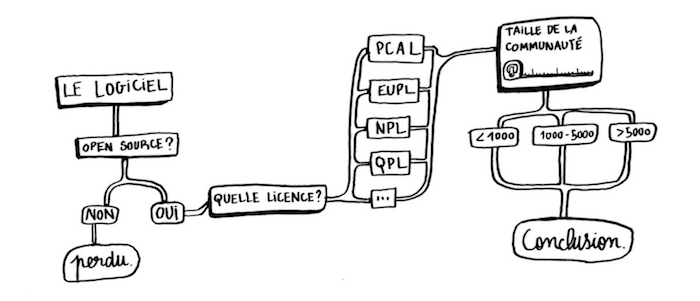 LE LOGICIEL
OPEN SOURCE?
NON
OUI
perdu.
QUELLE LICENCE?
PCAL
EUPL
NPL
QPL
...
TAILLE DE LA
COMMUNAUTÉ
<1000
1000-5000
>5000
Conclusion.